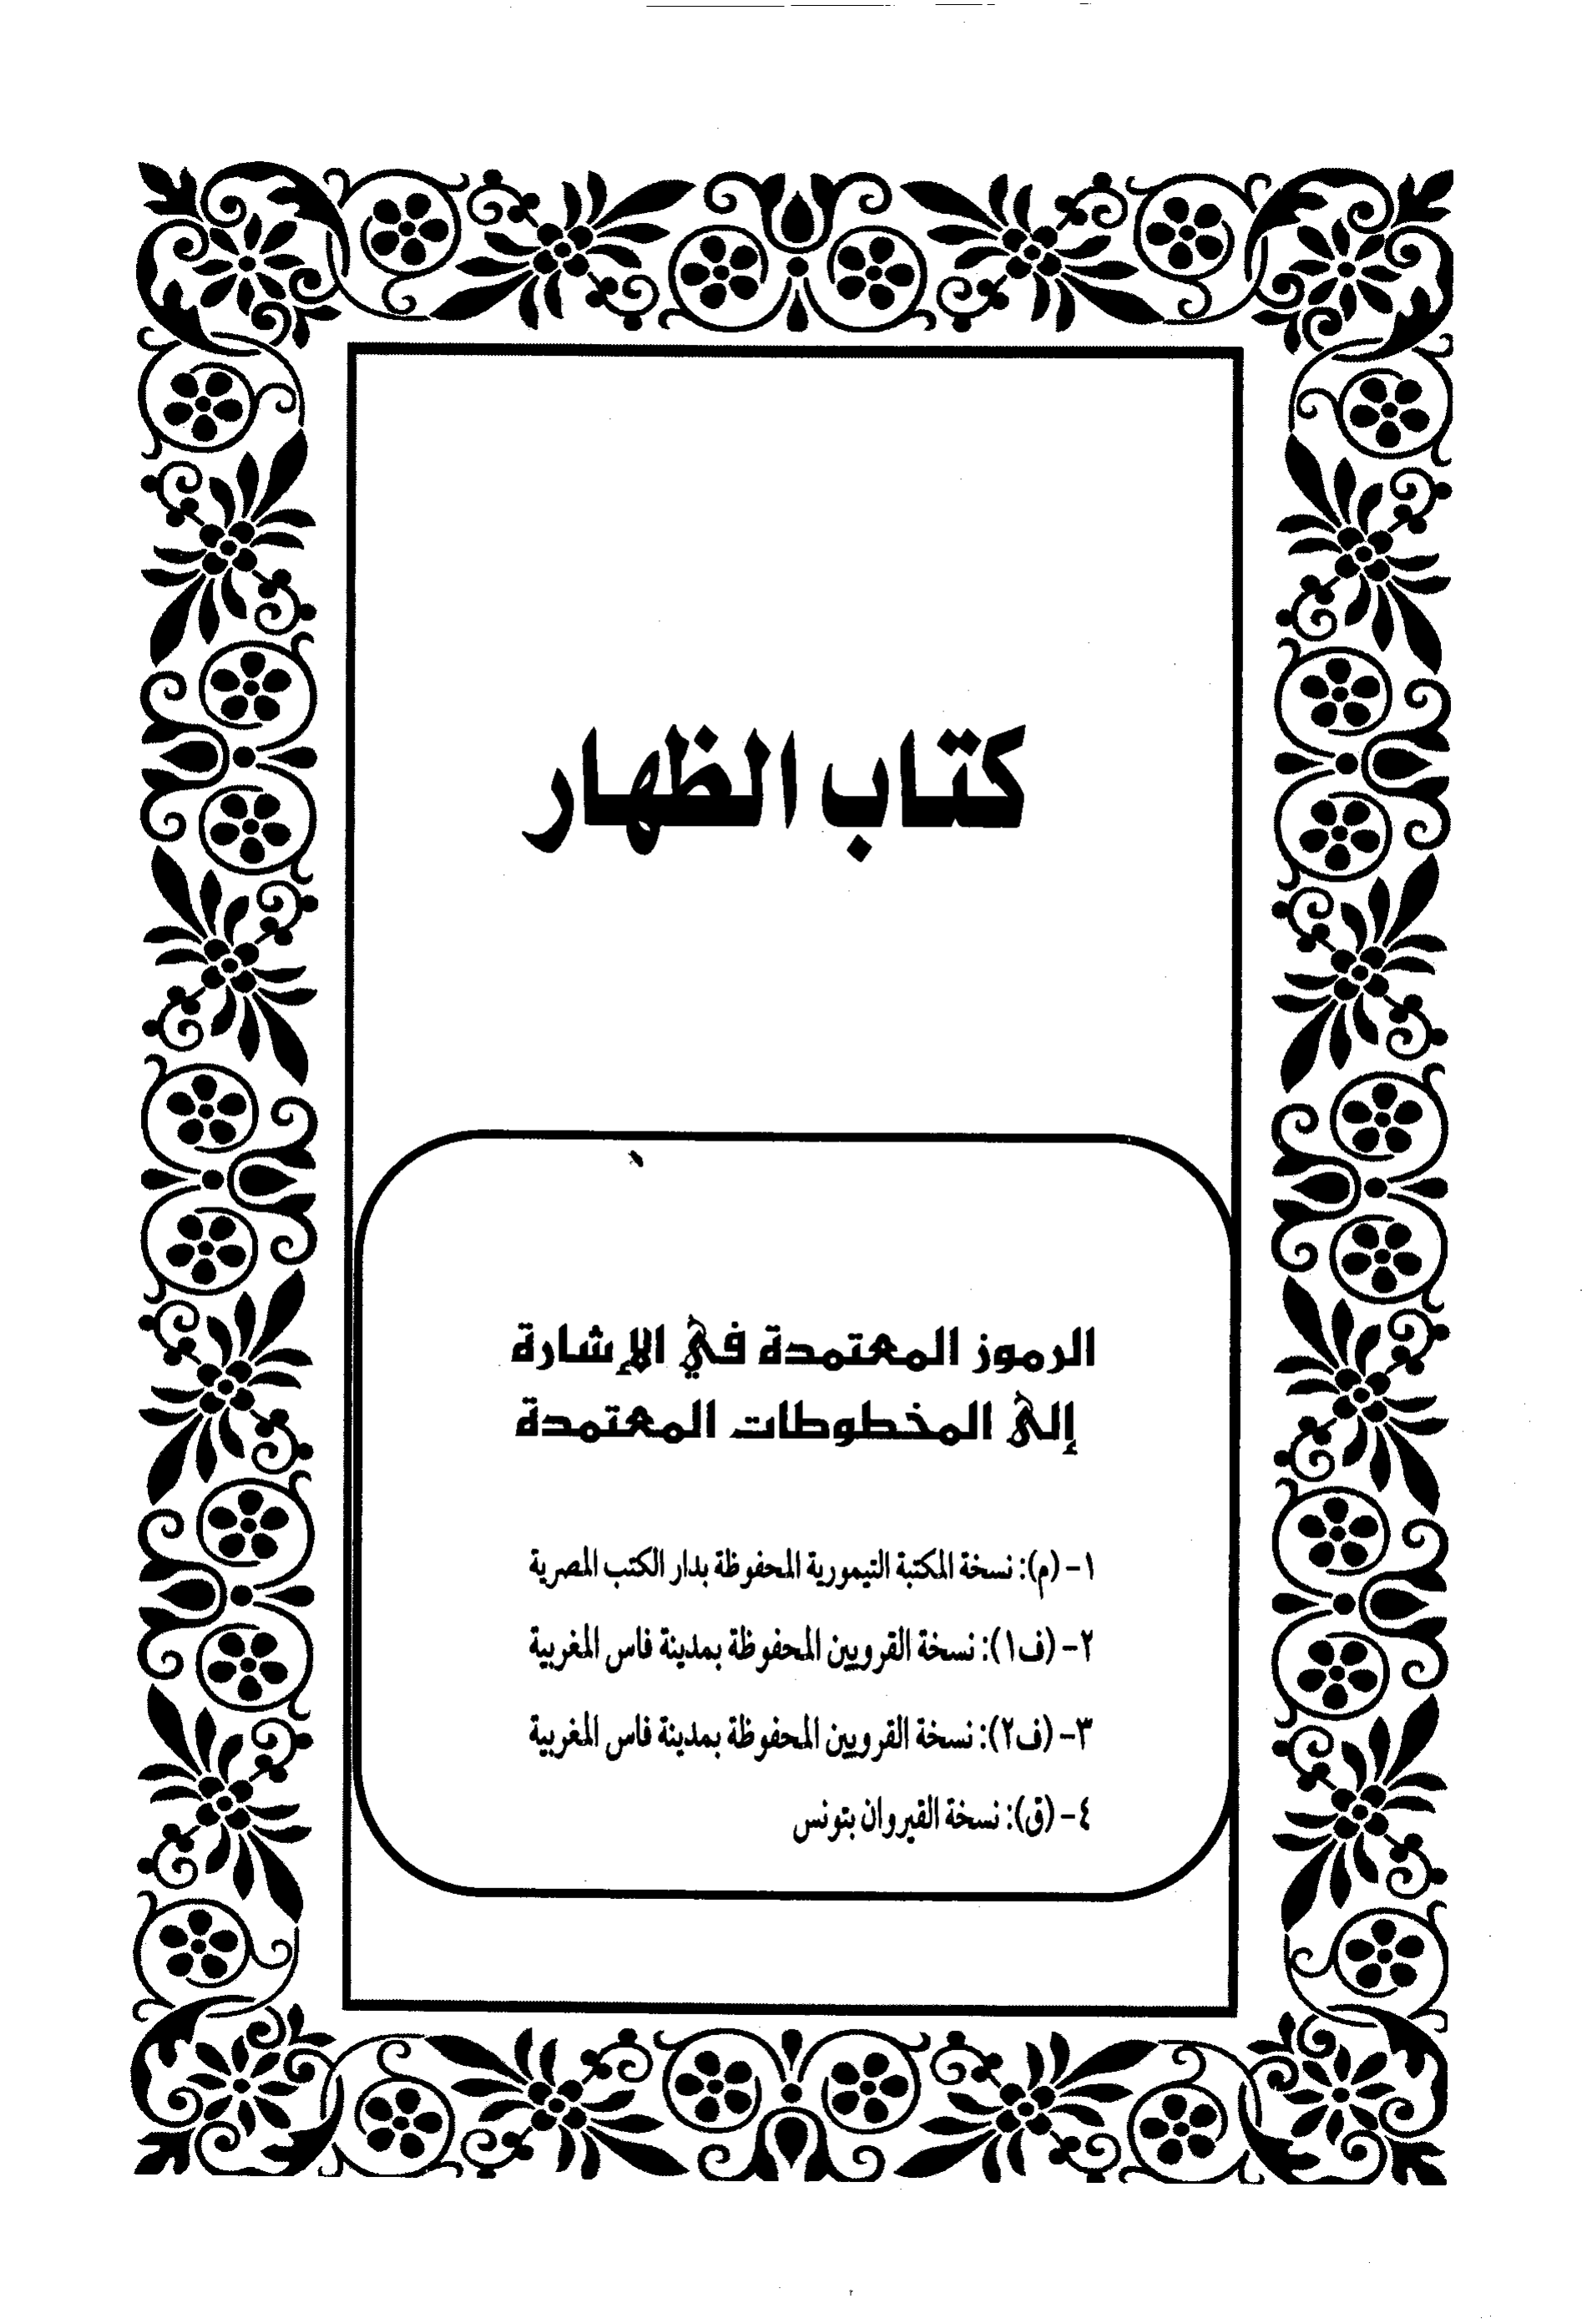 كتاب الظهار
الرموز المعتمدة في الإشارة
إلى المخطوطات المعتمدة
١- (م): نسخة المكتبة التيمورية المحفوظة بدار الكتب المصرية
٢- (ف١): نسخة القرويين المحفوظة بمدينة فاس المغربية
٣- (ف٢): نسخة القرويين المحفوظة بمدينة فاس المغربية
٤- (ق): نسخة القيروان بتونس